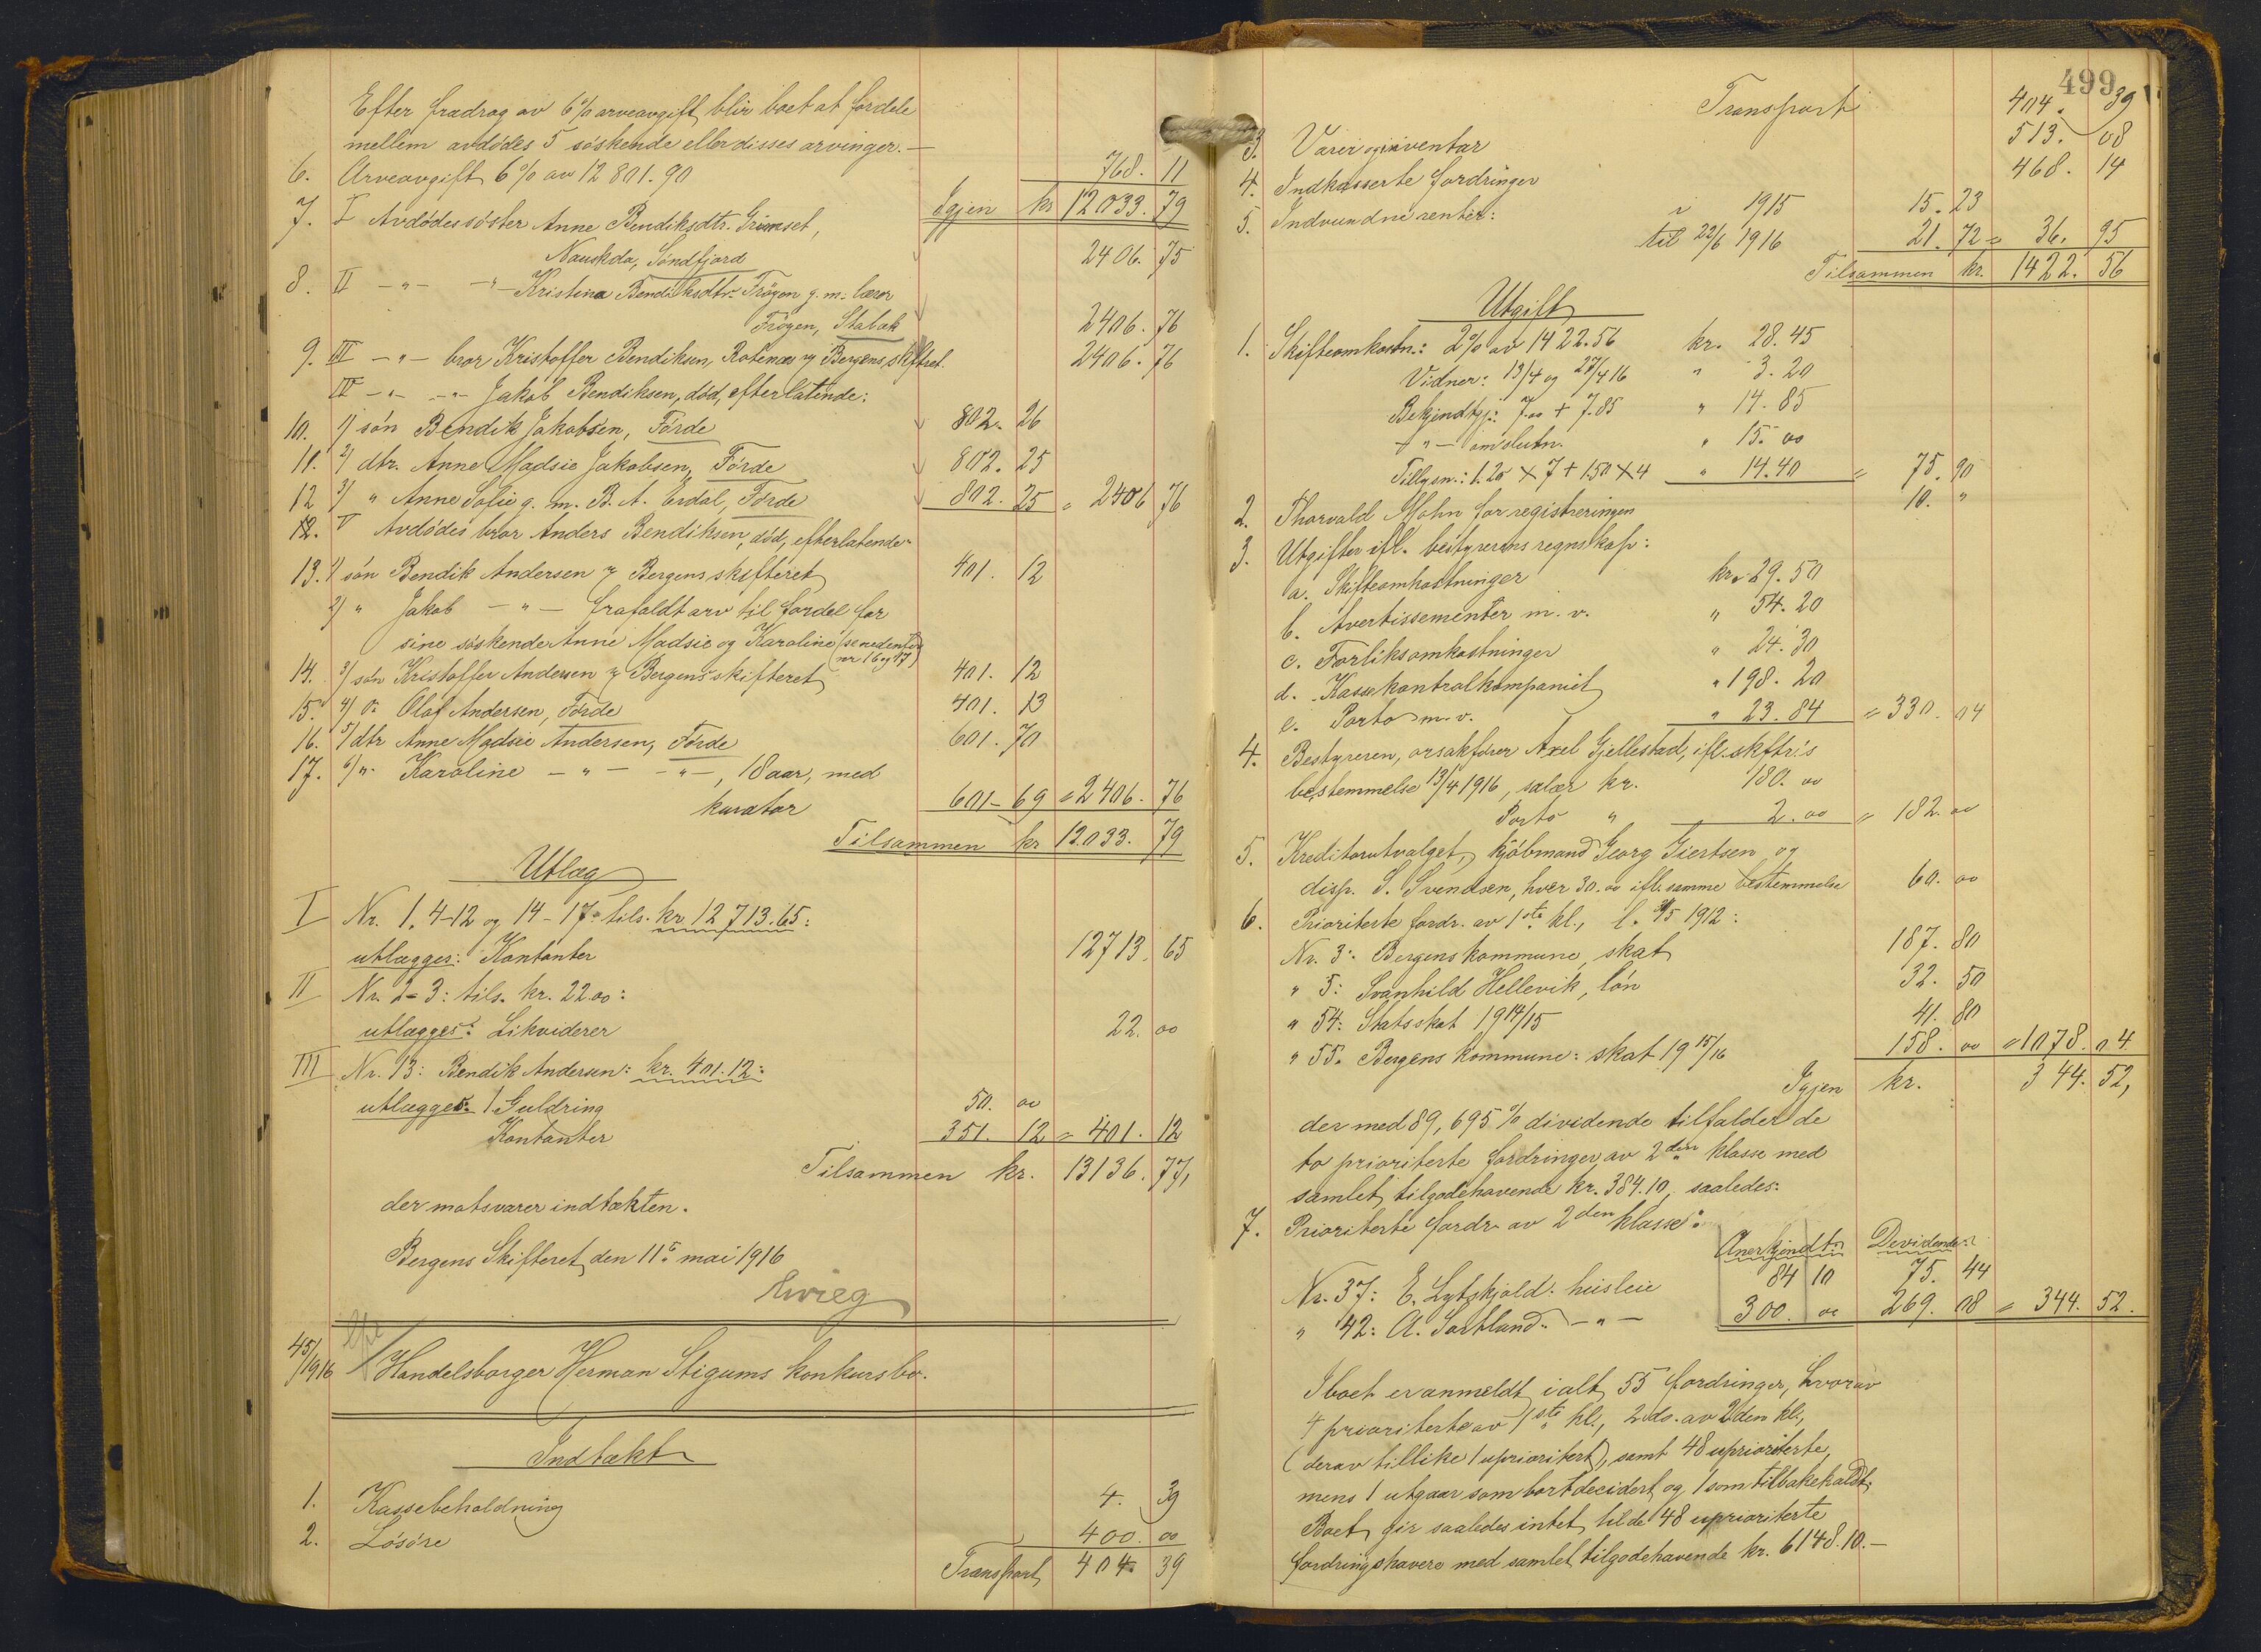 Efter fradrag av 6% arveavgift blir boet at fordele
mellem avdødes 5 söskende eller disses arvinger.—
6. Arveavgift 6% av 12 801.90 768. 11
Igjen kr 12033. 79
7. I Avdødes söster Anne Bendiksdtr. Grimset,
Naustdal, Söndfjord 2406. 75
8. II –"– –"– Kristina Bendiksdtr. Fröyen g.m. lærer
Fröyen, Stabæk 2406. 76
9. III –"– bror Kristoffer Bendiksen, Rotenæs og Bergens skiftret. 2406. 76
IV –"– –"– Jakob Bendiksen, död, efterlatende:
10. 1) sön Bendik Jakobsen, Förde 802. 26
11. 2) dtr. Anne Madsie Jakobsen, Förde 802. 25
12 3) " Anne Sofie g. m. B. A. Erdal, Förde 802. 25 = 2406 76
12. V Avdödes bror Anders Bendiksen, död, efterlatende
13. 1) sön Bendik Andersen Bergens skifteret 401. 12
2) " Jakob –"– frafaldt arv til fordel for
sine söskende Anne Madsie og Karoline (se nedenfor
nr 16 og 17)
14. 3) sön Kristoffer Andersen Bergens skifteret 401. 12
15. 4) do Olaf Andersen, Förde 401. 13
16. 5) dtr Anne Madsie Andersen, Förde 601. 70
17. 6) " Karoline –"– –"–, 18 aar, med
kurator 601 – 69 = 2406. 76
Tilsammen kr 12.033. 79
Utlæg
I Nr. 1, 4–12 og 14–17: tils. kr 12 713.65:
utlægges: Kontanter 12713. 65
II Nr. 2–3: tils. kr. 22.00:
utlægges: Likviderer 22. 00
III Nr. 13: Bendik Andersen: kr. 401.12:
utlægges: 1 Guldring 50. 00
Kontanter 351. 12 = 401. 12
Tilsammen kr. 13136. 77,
der motsvarer indtækten.
Bergens Skifteret, den 11te mai 1916
45/1916 Handelsborger Herman Stigums konkursbo.
Indtækt
1. Kassebeholdning 4. 39
2. Lösöre 400. 00
Transport 404. 39
499
Transport 404. 39
3. Varer og inventar 513. 08
4. Indkasserte fordringer 468. 14
5. Indvundne renter: 1915 15. 23
til 22/6 1916 21. 72 = 36. 95
Tilsammen kr. 1422. 56
Utgift
1. Skifteomkostn.: 2% av 1422.56 kr. 28.45
Vidner: 13/4 og 27/4 16 " 3. 20
Bekjendtgj: 7.00 + 7.85 " 14. 85
–"– om slutn. " 15. 00
Tillysn.: 1.20 × 7 + 1.50 × 4 " 14.40 = 75. 90
2. Thorvald Mohn for registreringen 10. "
3. Utgifter ifl. bestyrerens regnskap:
a. Skifteomkostninger kr. 29. 50
b. Avertissementer m. v. " 54. 20
c. Forliksomkostninger " 24. 30
d. Kassekontrolkompaniet " 198. 20
e. Porto m. v. " 23. 84 = 330. 04
4. Bestyreren, orsakförer Axel Gjellestad, ifl. skiftr's
bestemmelse 13/4 1916, salær kr. 180. 00
Porto " 2. 00 = 182. 00
5. Kreditorutvalget, kjöbmand Georg Giertsen og
disp. S. Svendsen, hver 30.00 ifl. samme bestemmelse 60. 00
6. Prioriterte fordr. av 1ste kl., l. 31/5 1912:
Nr. 3: Bergens kommune, skat 187. 80
" 5: Svanhild Hellevik, lön 32. 50
" 54: Statsskat 1914/15 41. 80
" 55. Bergens kommune: skat 1915/16 158. 00 = 1078. 04
Igjen kr. 344. 52,
der med 89,695% dividende tilfalder de
to prioriterte fordringer av 2den klasse med
samlet tilgodehavende kr. 384.10, saaledes:
7. Prioriterte fordr. av 2den klasse:
Anerkjendt: Devidende:
Nr. 37: E. Lytzkjold: husleie 84 10 75. 44
" 42: A. Sortland: –"– 300. 00 269. 08 = 344. 52.
I boet er anmeldt ialt 55 fordringer, hvorav
4 prioriterte av 1ste kl., 2 do. av 2den kl.,
(derav tillike 1 uprioritert), samt 48 uprioriterte,
mens 1 utgaar som bortdecidert og 1 som tilbakekaldt.
Boet gir saaledes intet til de 48 uprioriterte
fordringshavere med samlet tilgodehavende kr. 6148.10.—